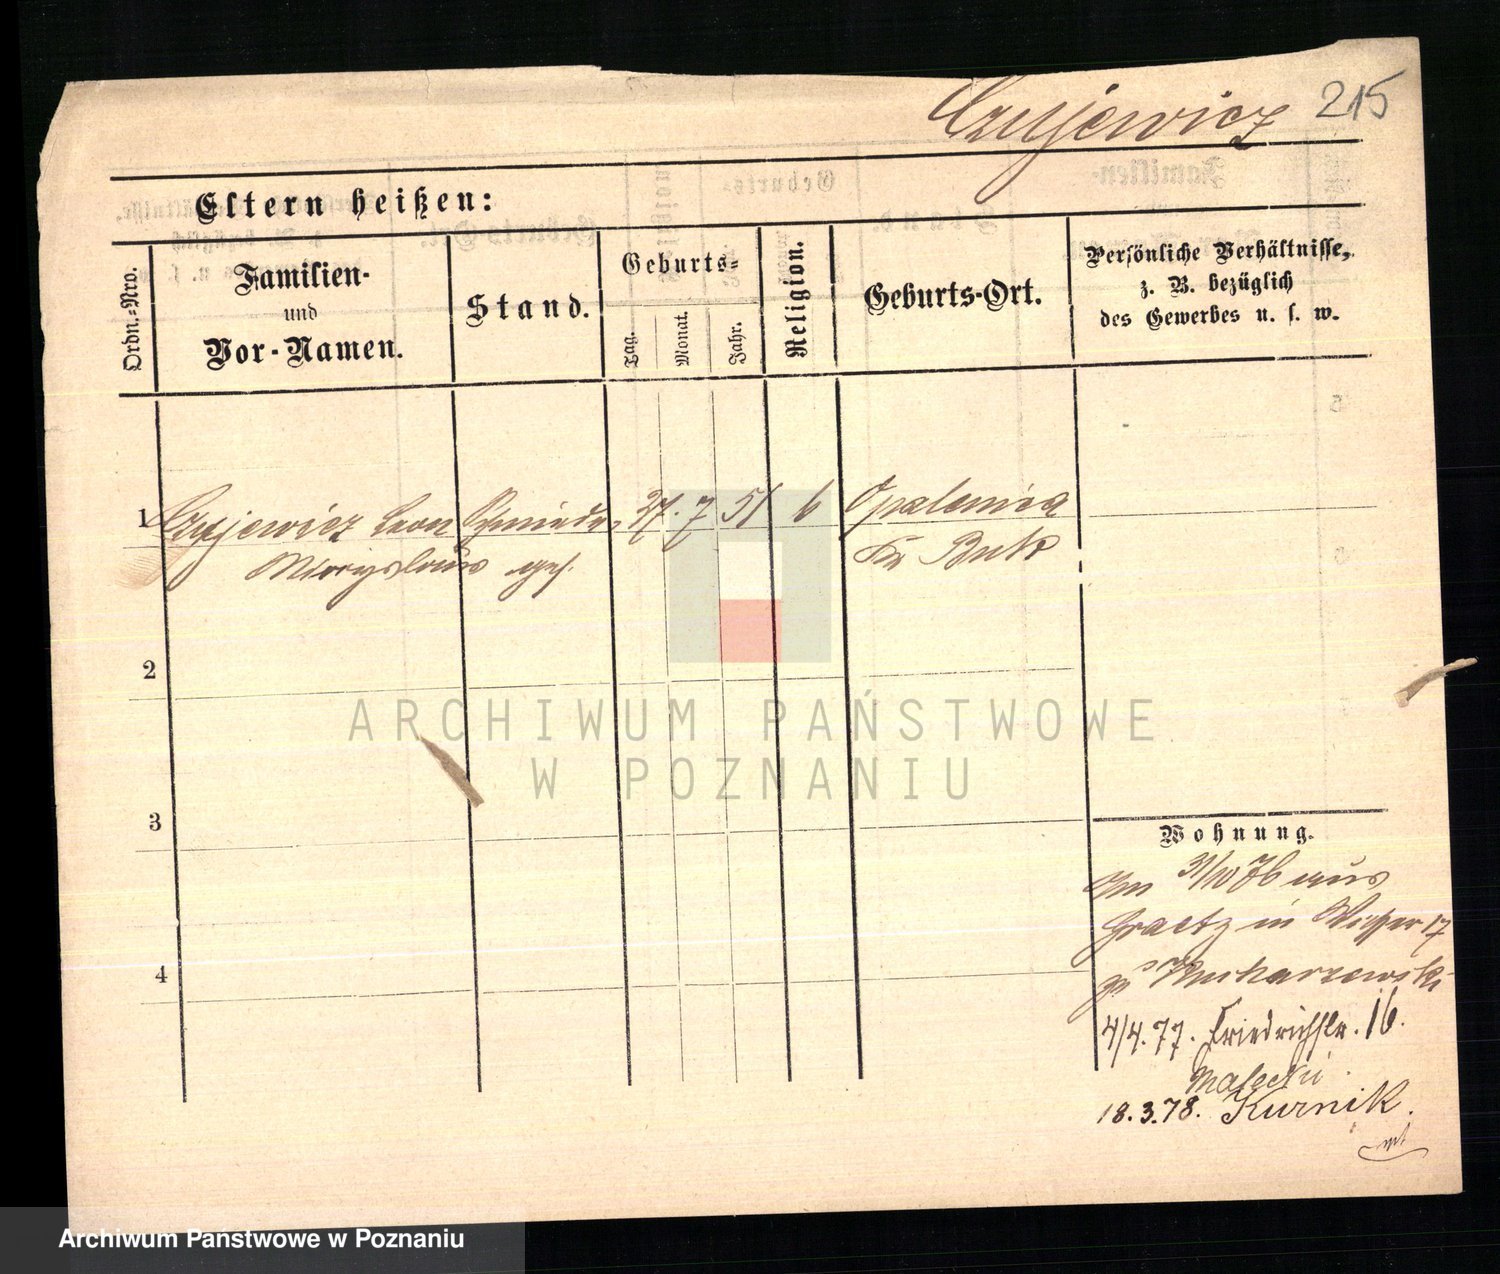 Czujewicz 215
Eltern heißen:
Ordn.-Nro.
Familien-
und
Vor-Namen.
Stand.
Geburts-
Tag.
Monat.
Jahr.
Religion.
Geburts-Ort.
Persönliche Verhältnisse,
z. B. bezüglich
des Gewerbes u. s. w.
1 Czujewicz Leon Schmiede- 27. 7 51 6 Opalenica
ges. Kr Buk
2
3
4
ARCHIWUM PAŃSTWOWE
W POZNANIU
Wohnung.
31/10 76 aus
Graetz in 17
4/4. 77. Friedrichstr. 16.
Malecki.
18.3.78. Kurnik.
Archiwum Państwowe w Poznaniu